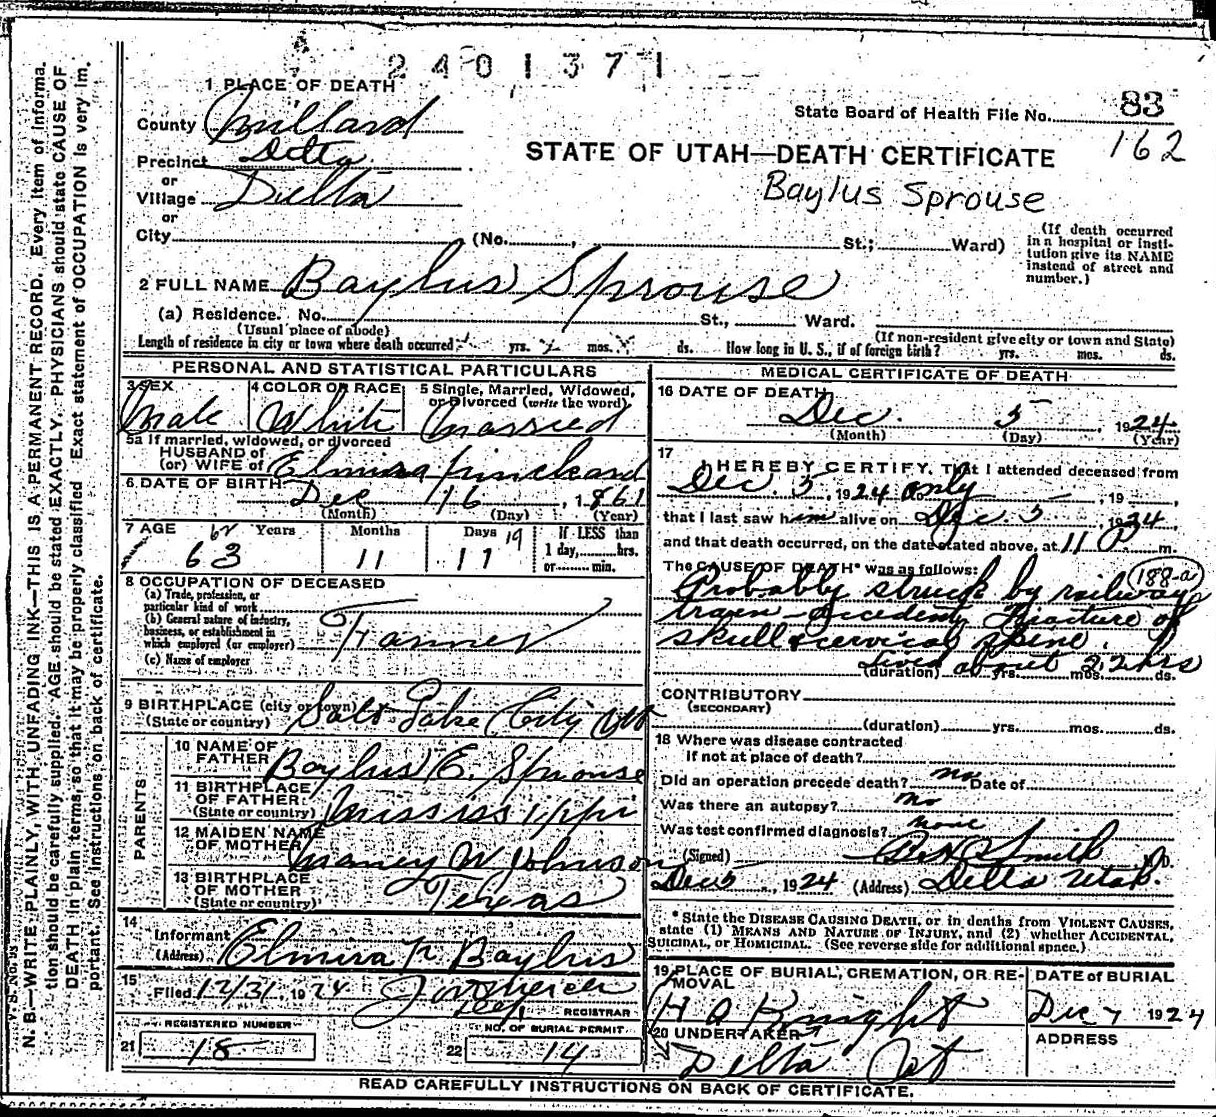 2401371
1 PLACE OF DEATH
State Board of Health File No. 83
County Millard
162
Precinct Delta
STATE OF UTAH—DEATH CERTIFICATE
or
Village Delta
Baylus Sprouse
or
City (No. , St.; Ward)
(If death occurred in a hospital or institution give its NAME instead of street and number.)
2 FULL NAME Baylus Sprouse
(a) Residence. No. St., Ward.
(Usual place of abode) (If non-resident give city or town and State)
Length of residence in city or town where death occurred yrs. mos. ds. How long in U. S., if of foreign birth? yrs. mos. ds.
PERSONAL AND STATISTICAL PARTICULARS
3 SEX Male
4 COLOR OR RACE White
5 Single, Married, Widowed, or Divorced (write the word) Married
5a If married, widowed, or divorced
HUSBAND of
(or) WIFE of Elmira
6 DATE OF BIRTH Dec 16, 1861
(Month) (Day) (Year)
7 AGE Years Months Days If LESS than
63 11 19 1 day, hrs.
or min.
8 OCCUPATION OF DECEASED
(a) Trade, profession, or
particular kind of work
(b) General nature of industry,
business, or establishment in
which employed (or employer) Farmer
(c) Name of employer
9 BIRTHPLACE (city or town)
(State or country) Salt Lake City
PARENTS
10 NAME OF
FATHER Baylus E. Sprouse
11 BIRTHPLACE
OF FATHER
(State or country) Mississippi
12 MAIDEN NAME
OF MOTHER Nancy W Johnson
13 BIRTHPLACE
OF MOTHER
(State or country) Texas
14
Informant Elmira Baylus
(Address)
15
Filed 12/31 1924
REGISTRAR
REGISTERED NUMBER NO. OF BURIAL PERMIT
21 18 22 14
MEDICAL CERTIFICATE OF DEATH
16 DATE OF DEATH
Dec. 5 1924
(Month) (Day) (Year)
17
I HEREBY CERTIFY, That I attended deceased from
Dec. 5, 1924 only, 19 ,
that I last saw him alive on Dec 5 1924
and that death occurred, on the date stated above, at 11 P m.
The CAUSE OF DEATH* was as follows: 188-a
Probably struck by railway
train accident Fracture of
skull & cervical spine.
Lived about 2 2 hrs
(duration) yrs. mos. ds.
CONTRIBUTORY
(SECONDARY)
(duration) yrs. mos. ds.
18 Where was disease contracted
If not at place of death?
Did an operation precede death? no Date of
Was there an autopsy? no
Was test confirmed diagnosis? none
(Signed) Smith M. D.
Dec 5, 1924 (Address) Delta Utah.
*State the DISEASE CAUSING DEATH, or in deaths from VIOLENT CAUSES,
state (1) MEANS AND NATURE OF INJURY, and (2) whether ACCIDENTAL,
SUICIDAL, or HOMICIDAL. (See reverse side for additional space.)
19 PLACE OF BURIAL, CREMATION, OR REMOVAL
DATE of BURIAL
Dec 7 1924
20 UNDERTAKER H A Knight
ADDRESS
Delta Ut
READ CAREFULLY INSTRUCTIONS ON BACK OF CERTIFICATE.
N. B.—WRITE PLAINLY, WITH UNFADING INK—THIS IS A PERMANENT RECORD. Every item of informa-
tion should be carefully supplied. AGE should be stated EXACTLY. PHYSICIANS should state CAUSE OF
DEATH in plain terms, so that it may be properly classified. Exact statement of OCCUPATION is very im-
portant. See instructions on back of certificate.